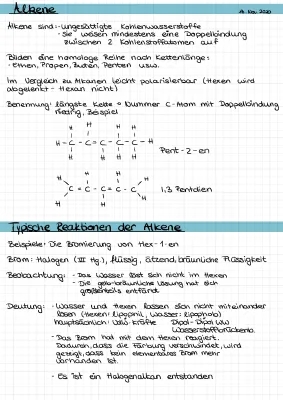 Alkene
14. Nov. 2020
Alkene sind: - ungesättigte Kohlenwasserstoffe
- Sie weisen mindestens eine Doppelbindung
zwischen 2 Kohlenstoffatomen auf
Bilden eine homologe Reihe nach Kettenlänge:
- Ethen, Propen, Buten, Penten usw.
Im Vergleich zu Alkanen leicht polarisierbar (Hexen wird
abgelenkt - Hexan nicht)
Benennung: längste Kette + Nummer C-Atom mit Doppelbindung
niedrig, Beispiel
H H H
H - C - C = C - C - C - H
H H H H H
Pent - 2 - en
H H H H
C = C - C = C - C
H H H H
1,3 Pentdien
Typische Reaktionen der Alkene
Beispiele: Die Bromierung von Hex-1-en
Brom: Halogen (VII Hg.), flüssig, ätzend, bräunliche Flüssigkeit
Beobachtung: - Das Wasser löst sich nicht im Hexen
- Die gelb-bräunliche Lösung hat sich
größtenteils entfärbt
Deutung: - Wasser und Hexen lassen sich nicht miteinander
lösen (Hexen: lipophil, Wasser: lipophob)
hauptsächlich: VdW-Kräfte Dipol-Dipol WW
Wasserstoffbrückenb.
- Das Brom hat mit dem Hexen reagiert.
Dadurch, dass die Färbung verschwindet, wird
gezeigt, dass kein elementares Brom mehr
vorhanden ist.
- Es ist ein Halogenalkan entstanden